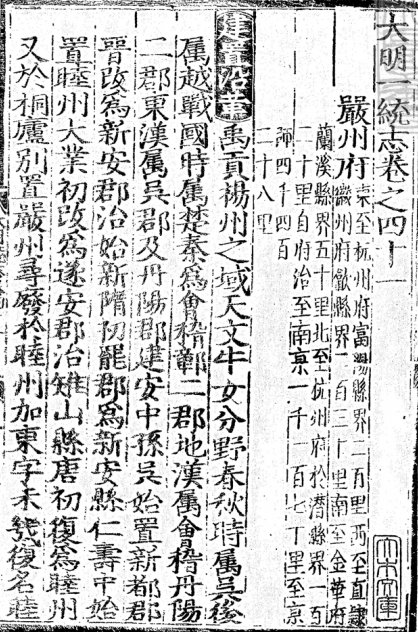 大明一統志卷之四十一
嚴州府
東至杭州府富陽縣界二百里西至直隸
徽州府歙縣界一百三十里南至金華府
蘭溪縣界五十里北至杭州府於潛縣界一百
二十里自府治至南京一千一百七十里至京
師四千四百
二十八里
建置沿革
禹貢楊州之域天文牛女分野春秋時屬吳後
属越戰國時属楚秦爲會稽鄣二郡地漢属會稽丹陽
二郡東漢属吳郡及丹陽郡建安中孫吳始置新都郡
晉改爲新安郡治始新隋初罷郡爲新安縣仁壽中始
置睦州大業初改爲遂安郡治雉山縣唐初復爲睦州
又於桐廬別置嚴州尋廢於睦州加東字未幾復名睦